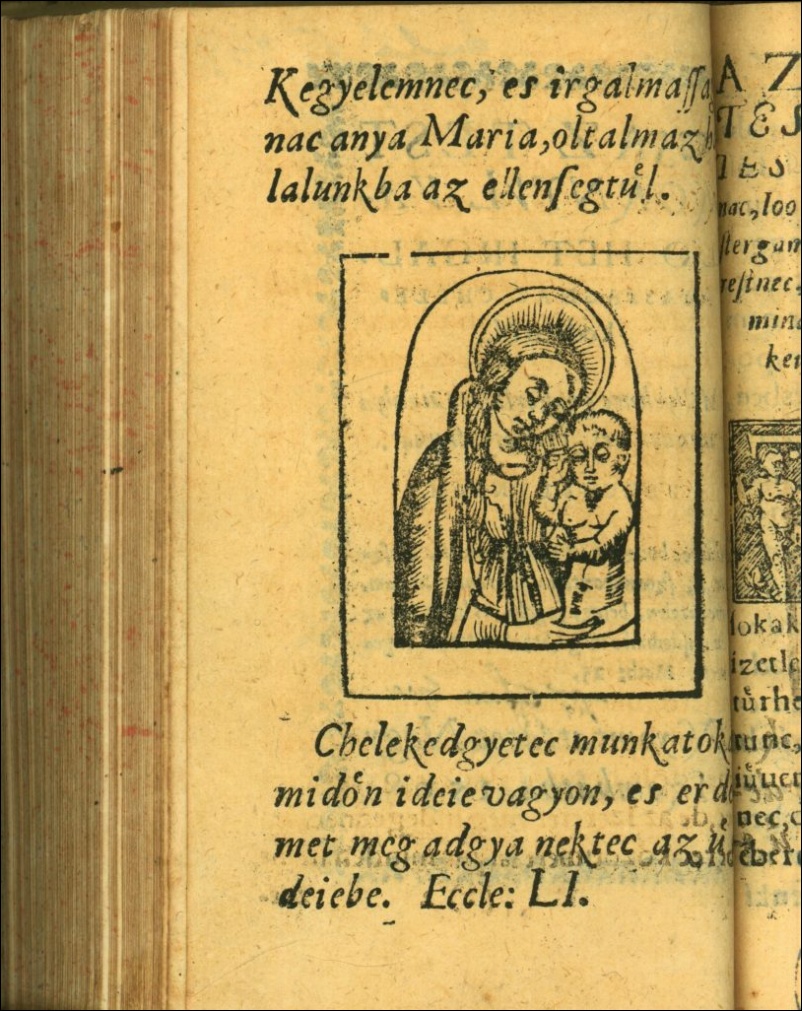 Kegyelemnec, es irgalmaſſa
nac anya Maria, oltalmaz
lalunkba az ellenſegtuͤl.
Chelekedgyetec munkatok
midoͤn ideie vagyon, es erd
met meg adgya nektec az
deiebe. Eccle: LI.
A Z
TES
IES
nac, loo
ſtergam
reſtnec.
mind
ken
lokak
izetle
tuͤrhe
tunc,
iuͤuen
nec,
eber